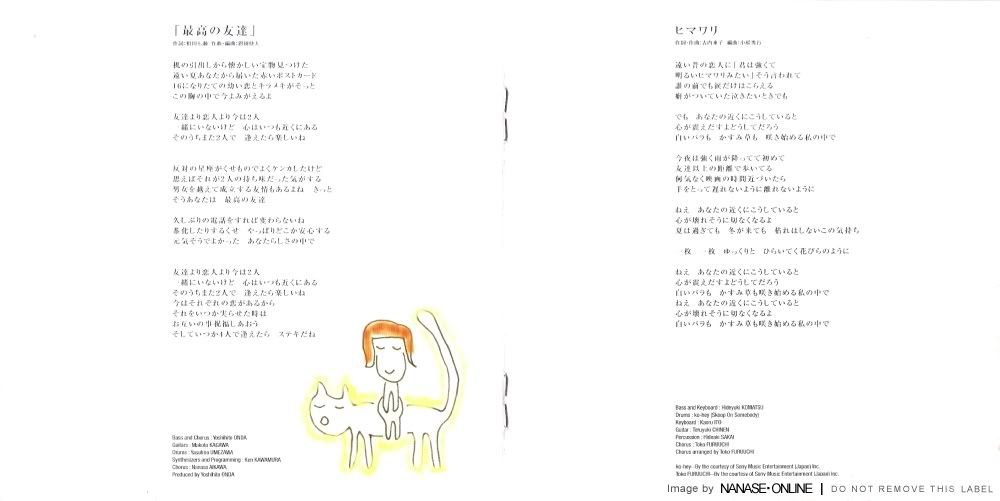 「最高の友達」
作詞:相川七瀬 作曲・編曲:
机の引出しから懐かしい宝物見つけた
遠い夏あなたから届いた赤いポストカード
16になりたての幼い恋とキラメキがそっと
この胸の中で今よみがえるよ
友達より恋人より今は2人
一緒にいないけど 心はいつも近くにある
そのうちまた2人で 逢えたら楽しいね
反対の星座がくせものでよくケンカしたけど
思えばそれが2人の持ち味だった気がする
男女を越えて成立する友情もあるよね きっと
そうあなたは 最高の友達
久しぶりの電話をすれば変わらないね
茶化したりするくせ やっぱりどこか安心する
元気そうでよかった あなたらしさの中で
友達より恋人より今は2人
一緒にいないけど 心はいつも近くにある
そのうちまた2人で 逢えたら楽しいね
今はそれぞれの恋があるから
それをいつか実らせた時は
お互いの事祝福しあおう
そしていつか4人で逢えたら ステキだね
Bass and Chorus : Yoshihito ONDA
Guitars : Makoto KAGAWA
Drums : Yasuhiro UMEZAWA
Synthesizers and Programming : Ken KAWAMURA
Chorus : Nanase AIKAWA
Produced by Yoshihito ONDA
ヒマワリ
作詞・作曲:古内東子 編曲:小松秀行
遠い昔の恋人に「君は強くて
明るいヒマワリみたい」そう言われて
誰の前でも涙だけはこらえる
癖がついていた泣きたいときでも
でも あなたの近くにこうしていると
心が震えだすよどうしてだろう
白いバラも かすみ草も 咲き始める私の中で
今夜は強く雨が降ってて初めて
友達以上の距離で歩いてる
何気なく映画の時間近づいたら
手をとって遅れないように離れないように
ねえ あなたの近くにこうしていると
心が壊れそうに切なくなるよ
夏は過ぎても 冬が来ても 枯れはしないこの気持ち
一枚 一枚 ゆっくりと ひらいてく花びらのように
ねえ あなたの近くにこうしていると
心が震えだすよどうしてだろう
白いバラも かすみ草も咲き始める私の中で
ねえ あなたの近くにこうしていると
心が壊れそうに切なくなるよ
白いバラも かすみ草も咲き始める私の中で
Bass and Keyboard : Hideyuki KOMATSU
Drums : ko-hey (Skoop On Somebody)
Keyboard : Kaoru ITO
Guitar : Teruyuki CHINEN
Percussion : Hideaki SAKAI
Chorus : Toko FURUUCHI
Chorus arranged by Toko FURUUCHI
ko-hey--By the courtesy of Sony Music Entertainment (Japan) Inc.
Toko FURUUCHI--By the courtesy of Sony Music Entertainment (Japan) Inc.
Image by NANASE・ONLINE | DO NOT REMOVE THIS LABEL